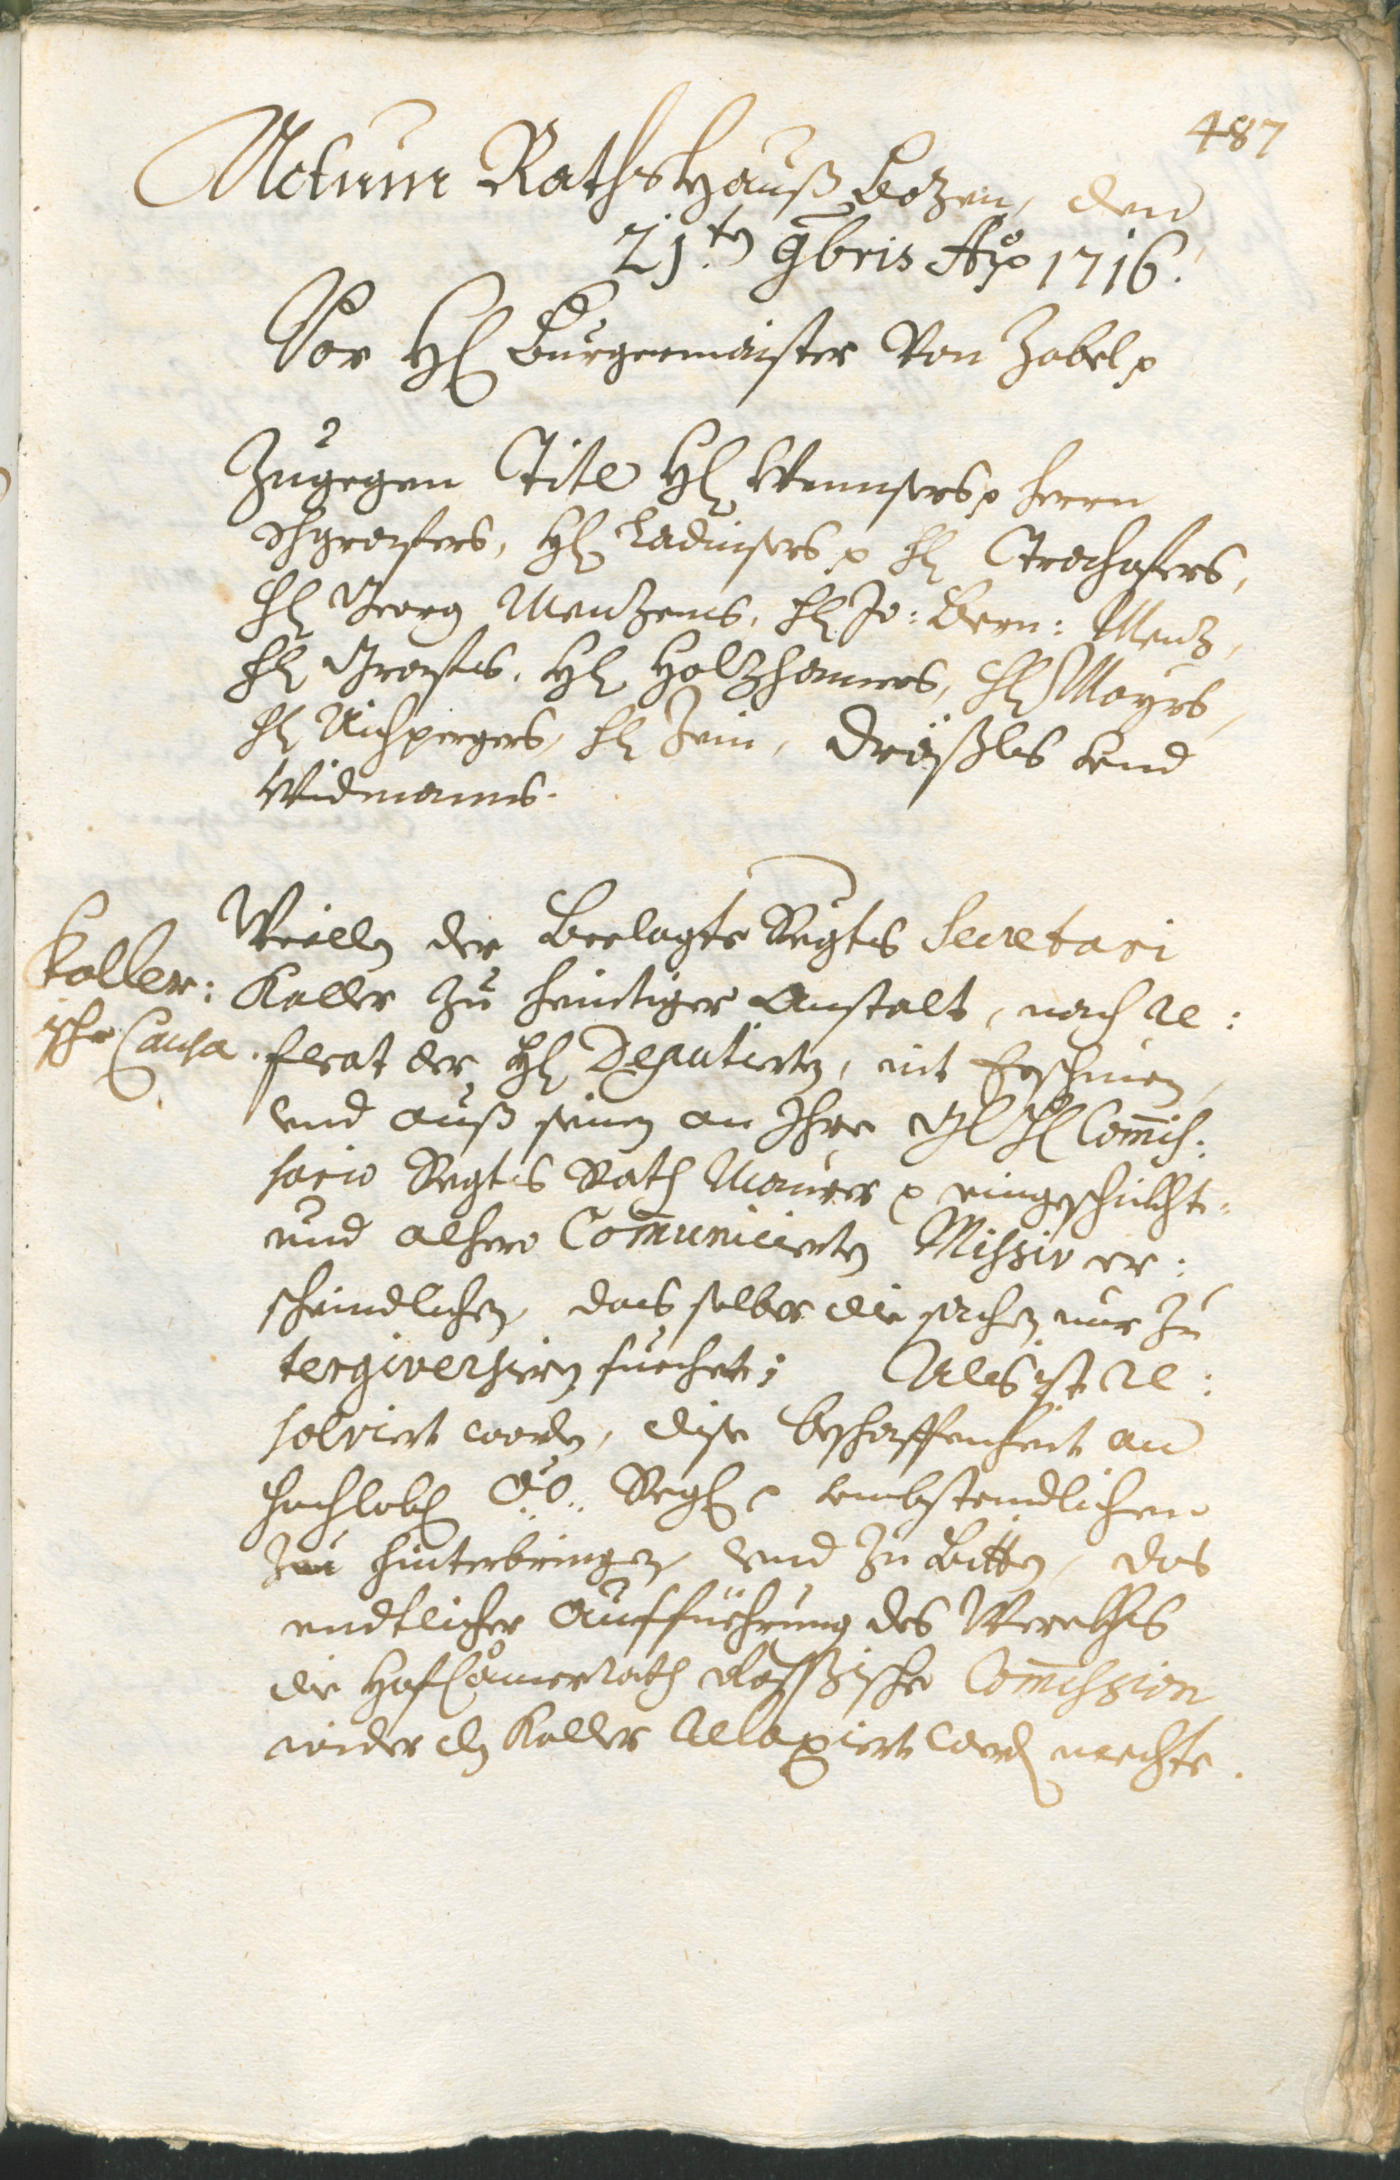 487
Actum Rathshauß Bozen, den
21.ten 9bris Ao 1716.
Vor H Burgermaister Von Zobel p
Zugegen Titl H Wensers p herrn
H Ladurners p H Trochofers,
H Georg Menzens, H Jo: Bern: Menz,
H Graffs, H Holzhamers, H Mayrs,
H Aichpergers, H Zein, Dräxls und
Widmanns.
Koller:
ische Causa.
Weillen der Beclagte Regts Secretari
Koller zu heintiger Anstalt, nach Re:
ferat der H Deputierten, nit Erschinen,
und auß seinen an Ihre H Commis:
sario Regts Rath Maurer p eingeschickht:
und alhero Communicierten Missiv er:
scheindlichen, das selber die sachen nur zu
tergiversiern suechet; Als ist re:
solviert worden, dise beschaffenheit an
Hochlobl O.Ö. Reg p umbstendlichen
zu hinterbringen, und zu Bitten, das
endtlicher Aufführung des Werckhs
die HofCamerrath Commission
wider den Koller Relaxiert werden mechte.